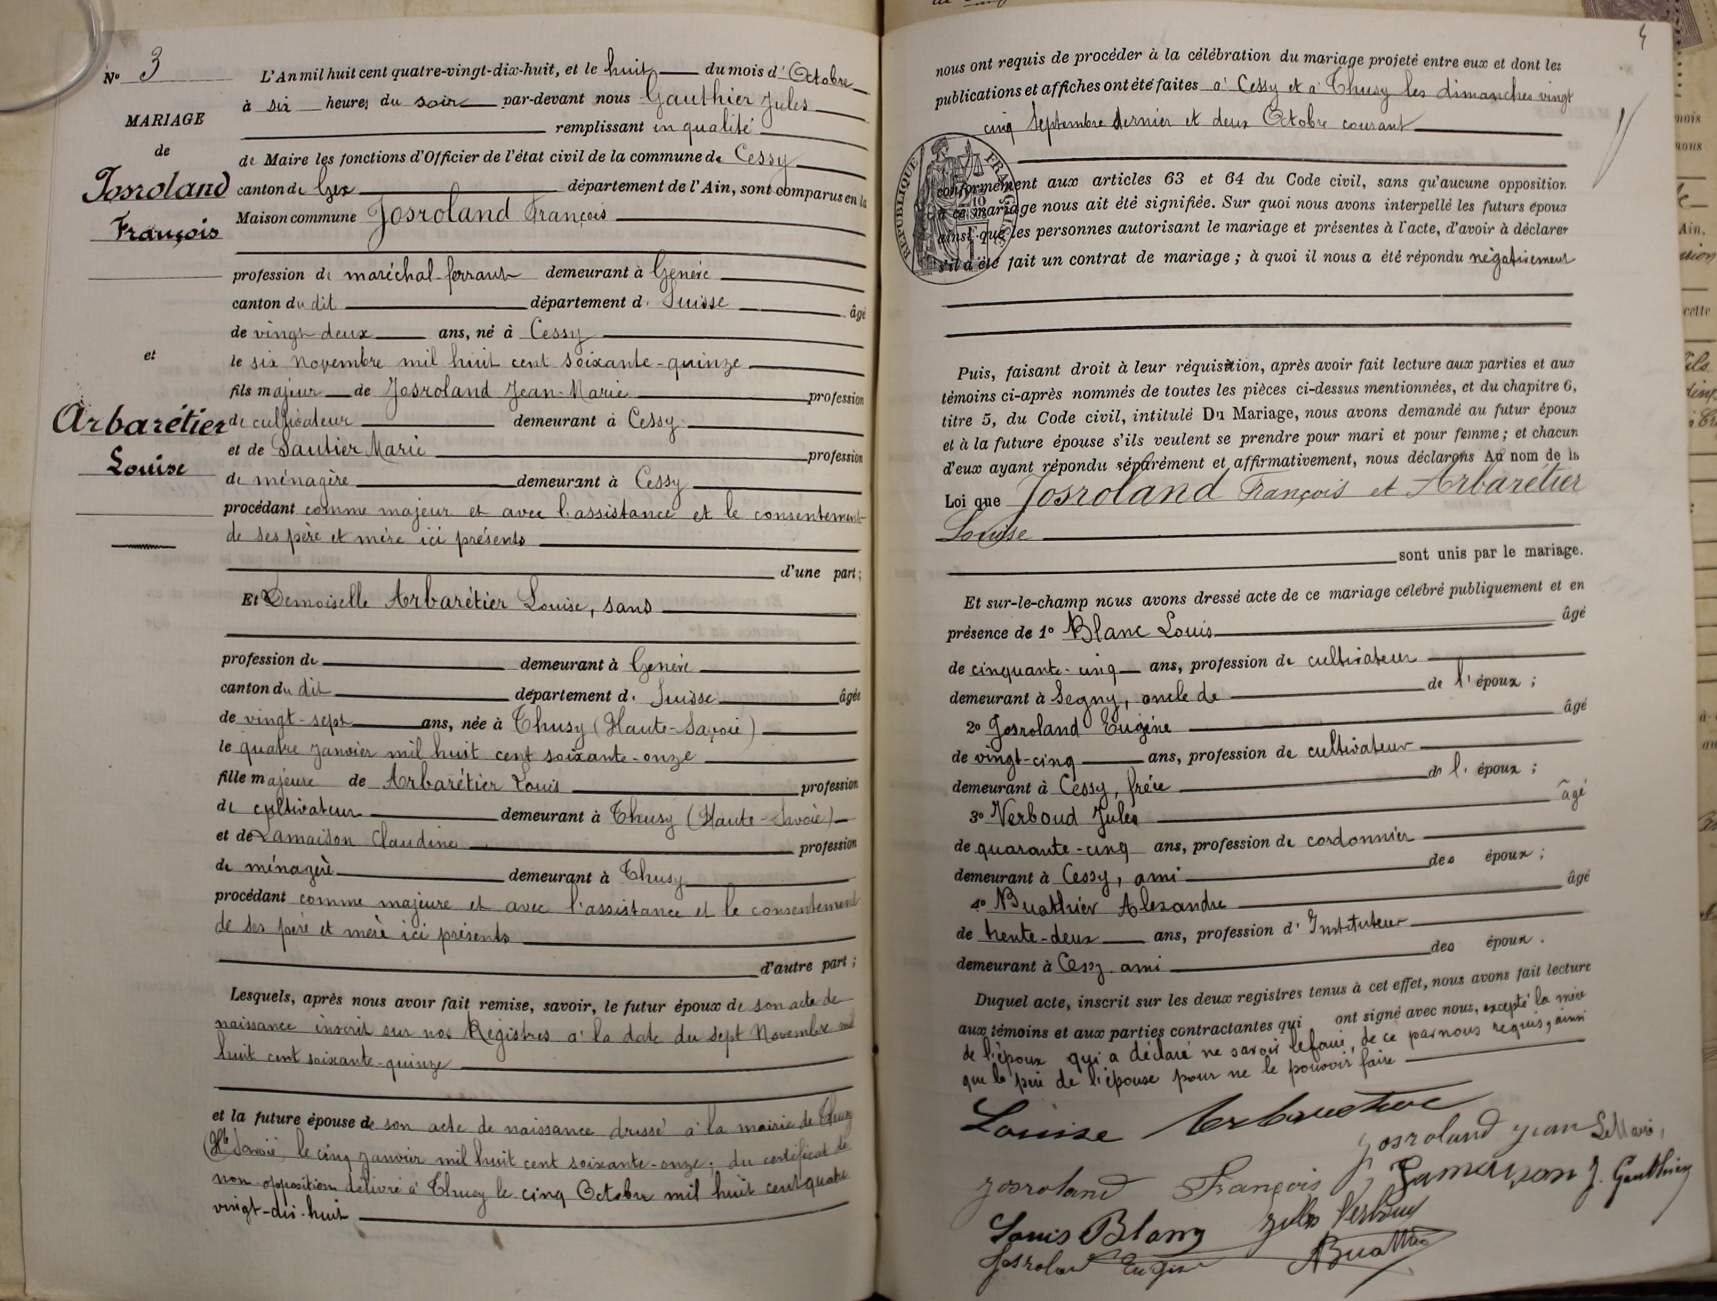 N° 3
MARIAGE
de
Josroland
François
et
Arbarétier
Louise
L'An mil huit cent quatre-vingt-dix-huit, et le huit du mois d'Octobre
à six heures du soir par-devant nous Gauthier Jules
remplissant en qualité
de Maire les fonctions d'Officier de l'état civil de la commune de Cessy
canton de Gex département de l'Ain, sont comparus en la
Maison commune Josroland François
profession de maréchal-ferrant demeurant à Genève
canton du dit département d. Suisse âgé
de vingt-deux ans, né à Cessy
le six novembre mil huit cent soixante-quinze
fils majeur de Josroland Jean-Marie profession
de cultivateur demeurant à Cessy
et de Sautier Marie profession
de ménagère demeurant à Cessy
procédant comme majeur et avec l'assistance et le consentement
de ses père et mère ici présents
d'une part;
Et Demoiselle Arbarétier Louise, sans
profession de demeurant à Genève
canton du dit département d. Suisse âgée
de vingt-sept ans, née à Thusy (Haute-Savoie)
le quatre janvier mil huit cent soixante-onze
fille majeure de Arbarétier Louis profession
de cultivateur demeurant à Thusy (Haute-Savoie)
et de Lamaison Claudine profession
de ménagère demeurant à Thusy
procédant comme majeure et avec l'assistance et le consentement
de ses père et mère ici présents
d'autre part;
Lesquels, après nous avoir fait remise, savoir, le futur époux de son acte de
naissance inscrit sur nos Registres à la date du sept Novembre mil
huit cent soixante-quinze
et la future épouse de son acte de naissance dressé à la mairie de Thusy
(Hte Savoie) le cinq janvier mil huit cent soixante-onze; du certificat de
non-opposition délivré à Thusy le cinq Octobre mil huit cent quatre
vingt-dix-huit
4
nous ont requis de procéder à la célébration du mariage projeté entre eux et dont les
publications et affiches ont été faites à Cessy et à Thusy les dimanches vingt
cinq Septembre dernier et deux Octobre courant
RÉPUBLIQUE FRANÇAISE
conformément aux articles 63 et 64 du Code civil, sans qu'aucune opposition
à ce mariage nous ait été signifiée. Sur quoi nous avons interpellé les futurs époux
ainsi que les personnes autorisant le mariage et présentes à l'acte, d'avoir à déclarer
s'il a été fait un contrat de mariage; à quoi il nous a été répondu négativement
Puis, faisant droit à leur réquisition, après avoir fait lecture aux parties et aux
témoins ci-après nommés de toutes les pièces ci-dessus mentionnées, et du chapitre 6,
titre 5, du Code civil, intitulé Du Mariage, nous avons demandé au futur époux
et à la future épouse s'ils veulent se prendre pour mari et pour femme; et chacun
d'eux ayant répondu séparément et affirmativement, nous déclarons Au nom de la
Loi que Josroland François et Arbarétier
Louise
sont unis par le mariage.
Et sur-le-champ nous avons dressé acte de ce mariage célébré publiquement et en
présence de 1° Blanc Louis âgé
de cinquante-cinq ans, profession de cultivateur
demeurant à Segny, oncle de de l'époux;
2° Josroland Eugène âgé
de vingt-cinq ans, profession de cultivateur
demeurant à Cessy, frère de l'époux;
3° Verboud Jules âgé
de quarante-cinq ans, profession de cordonnier
demeurant à Cessy, ami des époux;
4° Buathier Alexandre âgé
de trente-deux ans, profession d'Instituteur
demeurant à Cessy ami des époux.
Duquel acte, inscrit sur les deux registres tenus à cet effet, nous avons fait lecture
aux témoins et aux parties contractantes qui ont signé avec nous, excepté la mère
de l'époux qui a déclaré ne savoir le faire, de ce par nous requis, ainsi
que le père de l'épouse pour ne le pouvoir faire
Louise Arbarétier
Josroland Jean
Josroland François Lamaison J. Gauthier
Louis Blanc Jules Verboud
Josroland Eugène Buathier